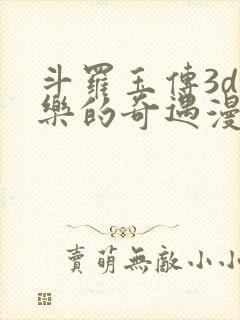 斗羅玉傳3d
樂的奇遇漫
賣萌無敵小小